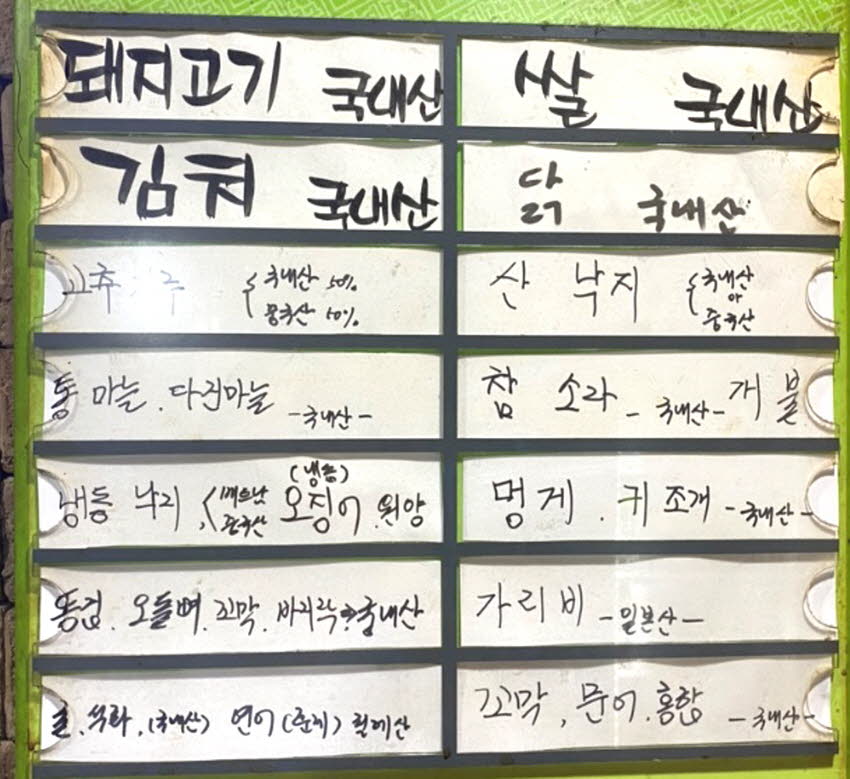 돼지고기 국내산
쌀 국내산
김치 국내산
닭 국내산
고추 국내산 50%
중국산 50%
산 낙지 국내산
중국산
통 마늘. 다진마늘 -국내산-
참 소라 - 국내산 - 개불
냉동 낙지 베트남
중국산 (냉동)
오징어 원양
멍게. 귀 조개 -국내산-
오돌뼈. 꼬막. 바지락 국내산
가리비 -일본산-
굴. 석화. (국내산) 연어 (훈제) 칠레산
꼬막, 문어. 홍합 -국내산-